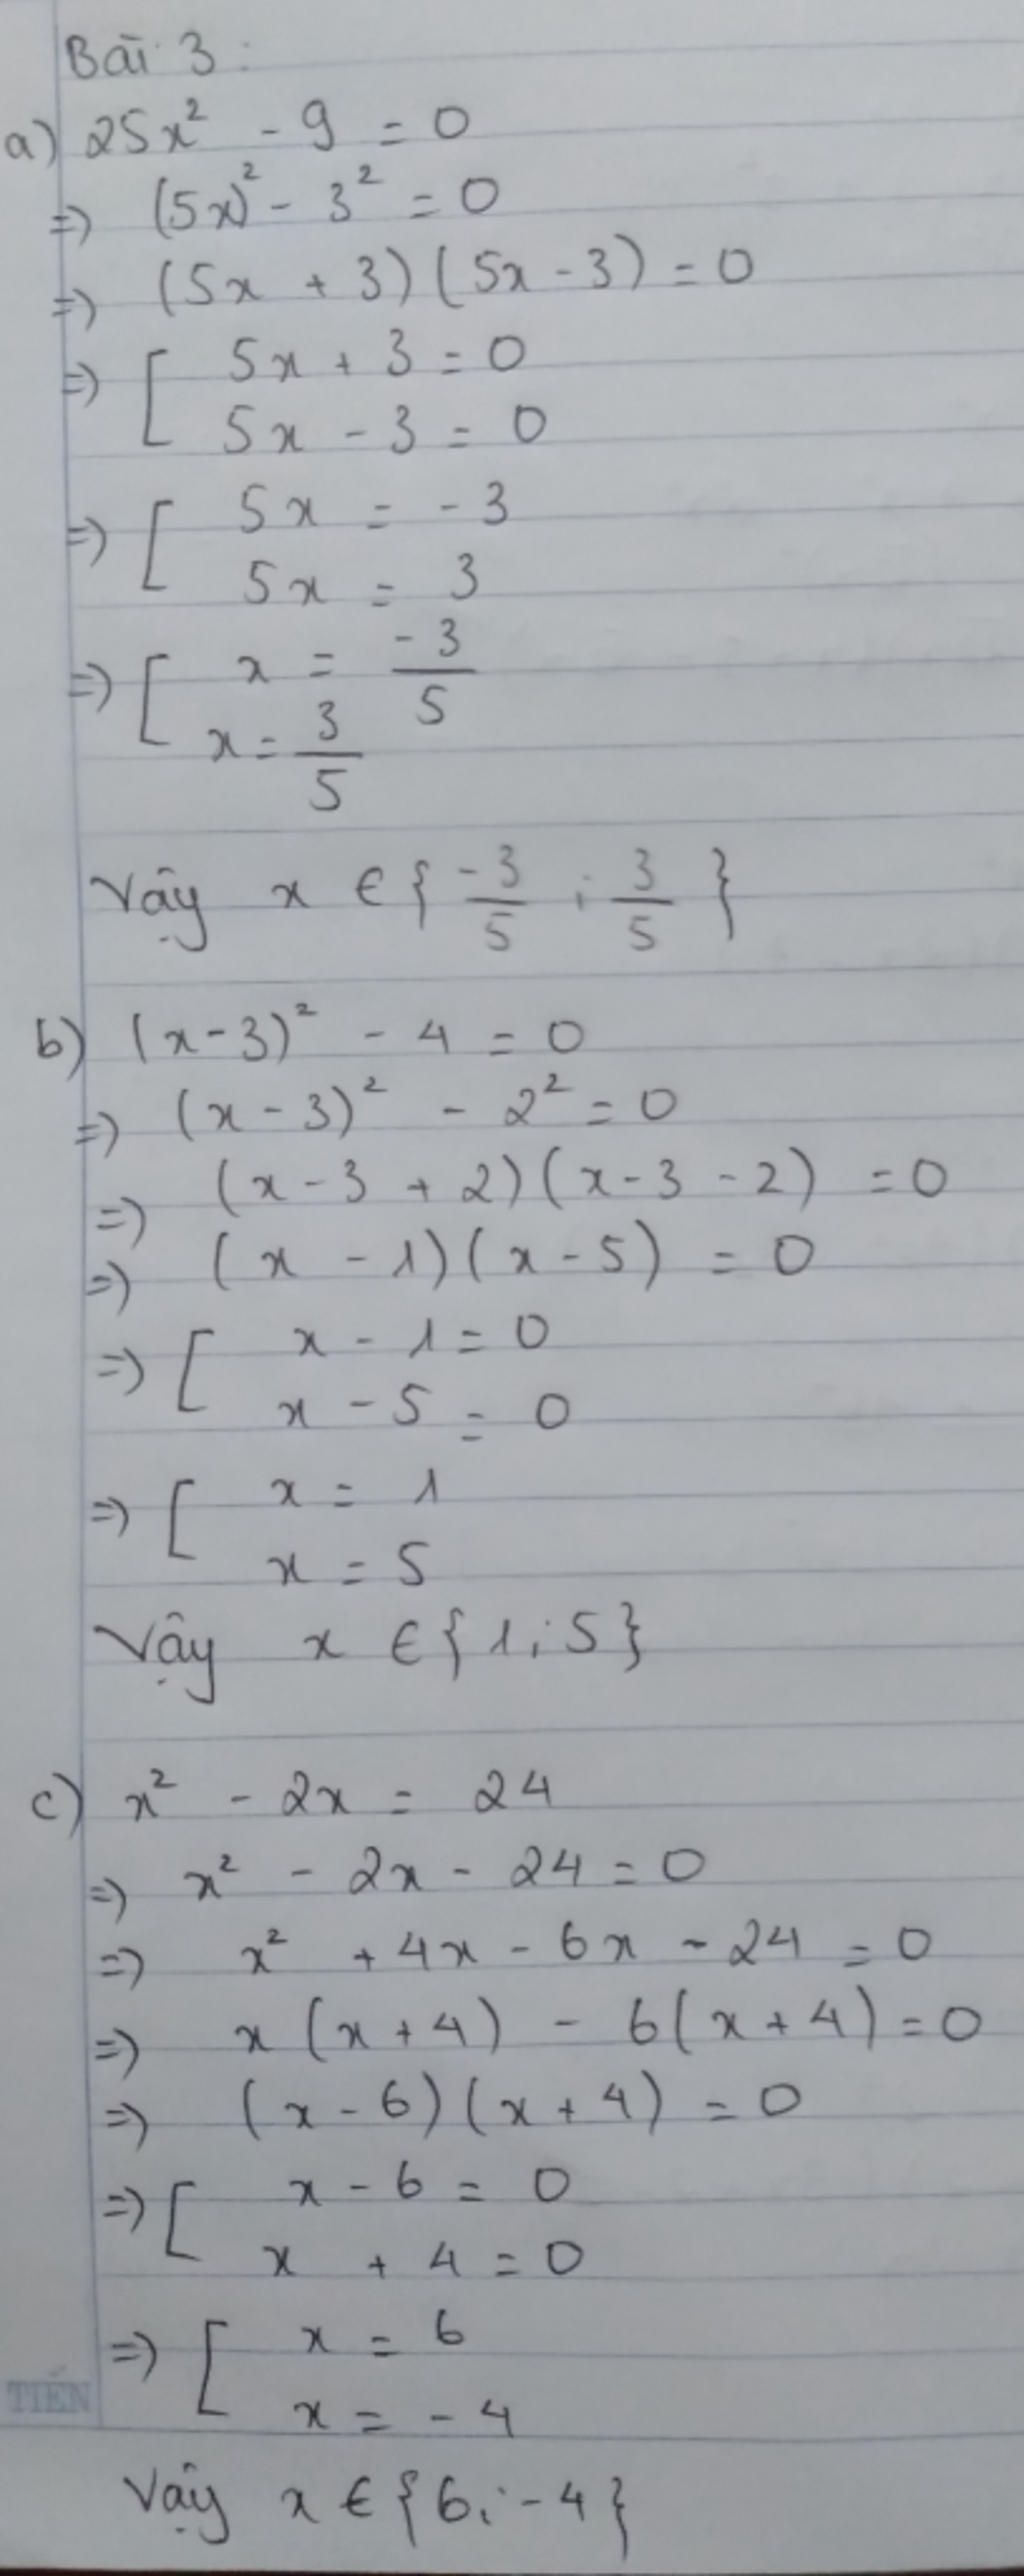 Bài 3:
a) 25x² - 9 = 0
=> (5x)² - 3² = 0
=> (5x + 3)(5x - 3) = 0
=> [ 5x + 3 = 0
5x - 3 = 0
=> [ 5x = -3
5x = 3
=> [ x = -3/5
x = 3/5
Vậy x ∈ { -3/5 ; 3/5 }
b) (x-3)² - 4 = 0
=> (x - 3)² - 2² = 0
=> (x - 3 + 2)(x - 3 - 2) = 0
=> (x - 1)(x - 5) = 0
=> [ x - 1 = 0
x - 5 = 0
=> [ x = 1
x = 5
Vậy x ∈ {1; 5}
c) x² - 2x = 24
=> x² - 2x - 24 = 0
=> x² + 4x - 6x - 24 = 0
=> x(x + 4) - 6(x + 4) = 0
=> (x - 6)(x + 4) = 0
=> [ x - 6 = 0
x + 4 = 0
=> [ x = 6
TIẾN
x = -4
Vậy x ∈ {6; -4}